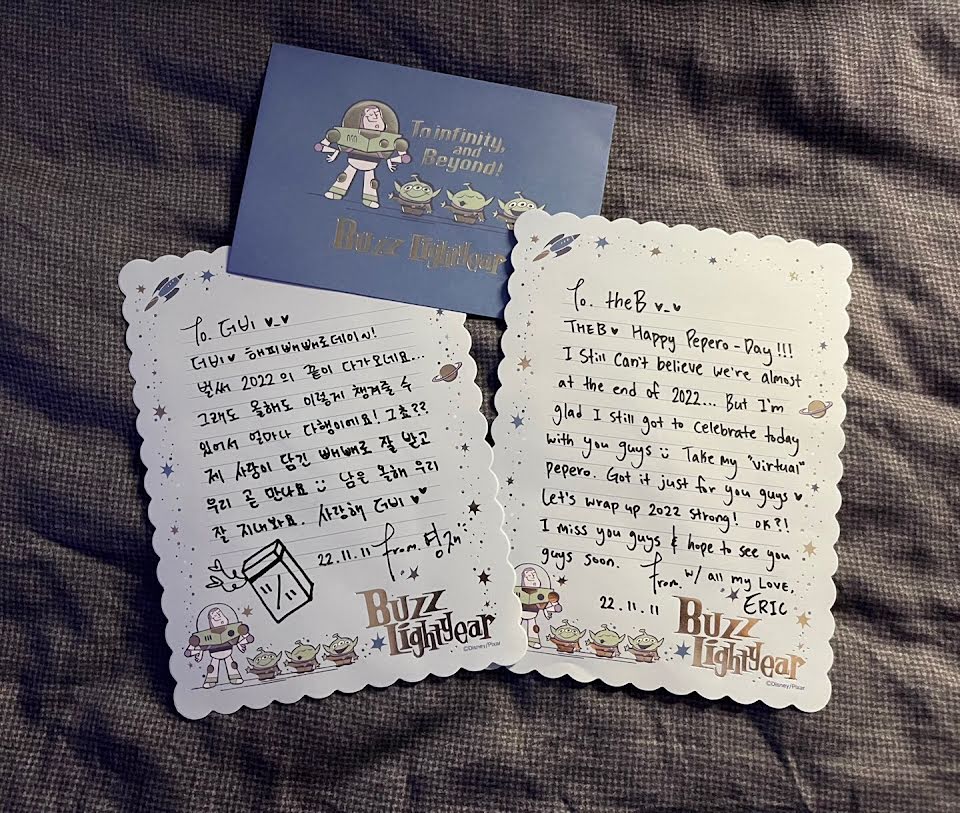 To infinity,
and
Beyond!
Buzz Lightyear
To. 더비 ♥_♥
더비♥ 해피빼빼로데이~!
벌써 2022의 끝이 다가오네요...
그래도 올해도 이렇게 챙겨줄 수
있어서 얼마나 다행이에요! 그쵸??
제 사랑이 담긴 빼빼로 잘 받고
우리 곧 만나요 :) 남은 올해 우리
잘 지내봐요. 사랑해 더비 ♥♥
22.11.11 from. 영재
Buzz
Lightyear
©Disney/Pixar
To. theB ♥_♥
THEB♥ Happy Pepero-Day!!!
I still can't believe we're almost
at the end of 2022... But I'm
glad I still got to celebrate today
with you guys :) Take my "virtual"
pepero. Got it just for you guys ♥
Let's wrap up 2022 strong! OK?!
I miss you guys & hope to see you
guys soon. from. w/ all my love,
22.11.11 ERIC
Buzz
Lightyear
©Disney/Pixar